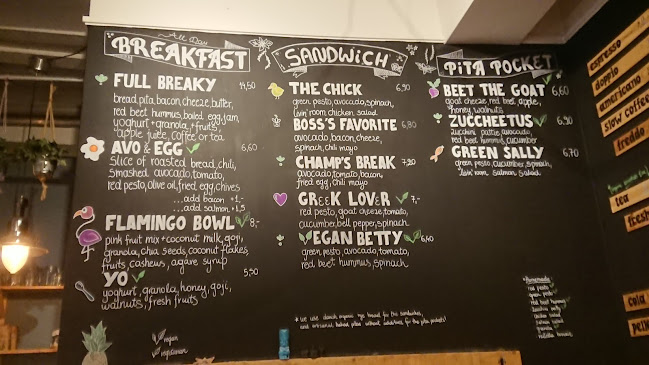 All Day
BREAKFAST
FULL BREAKY
bread, pita, bacon, cheese, butter,
red beet hummus, boiled egg, jam,
yoghurt + granola, + fruits,
apple juice, coffee or tea
AVO & EGG 6,60
slice of roasted bread, chili,
smashed avocado, tomato,
red pesto, olive oil, fried egg, chives
...add bacon +1,-
...add salmon +1,5
FLAMINGO BOWL 8,-
pink fruit mix + coconut milk, goji,
granola, chia seeds, coconut flakes,
fruits, cashews, agave syrup
YO 5,50
yoghurt, granola, honey, goji,
walnuts, fresh fruits
vegan
vegetarian
SANDWiCH
THE CHICK 6,90
green pesto, avocado, spinach,
livin' room chicken salad
BOSS'S FAVORITE 6,80
avocado, bacon, cheese,
spinach, chili mayo
CHAMP'S BREAK 7,20
avocado, tomato, bacon,
fried egg, chili mayo
GREEK LOVER 7,-
red pesto, goat cheese, tomato,
cucumber, bell pepper, spinach
VEGAN BETTY 6,40
green pesto, avocado, tomato,
red beet hummus, spinach
* we use danish organic rye bread for the sandwiches,
and artisanal baked pitas without additives for the pita pockets!
PiTA POCKET
BEET THE GOAT 6,60
goat cheese, red beet, apple,
honey, walnuts
ZUCCHEETUS 6,90
zucchini pattie, avocado,
red beet hummus, cucumber
GREEN SALLY 6,70
green pesto, cucumber, spinach,
livin' room salmon salad
* Homemade:
red pesto
green pesto
red beet hummus
zucchini patty
chicken salad
salmon salad
granola
espresso
doppio
americano
slow coffee
freddo
tea
fresh
cola